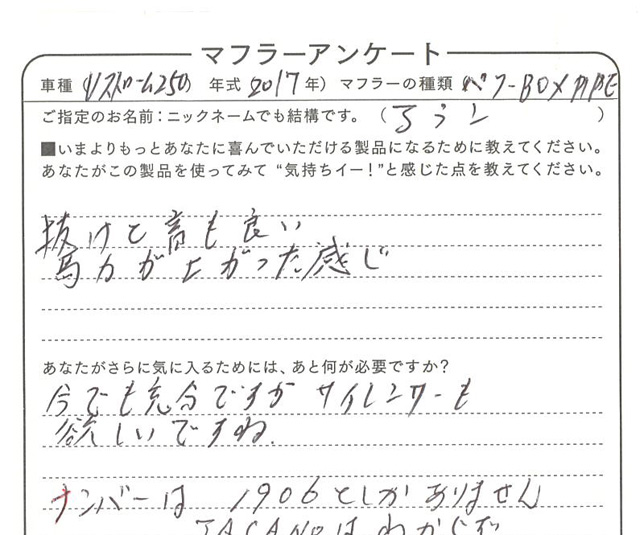 マフラーアンケート
車種 (Vストローム250) 年式 2017年) マフラーの種類 パワーBOXPIPE
ご指定のお名前:ニックネームでも結構です。( るうと )
■いまよりもっとあなたに喜んでいただける製品になるために教えてください。
あなたがこの製品を使ってみて“気持ちイー!”と感じた点を教えてください。
抜けと音も良い
馬力が上がった感じ
あなたがさらに気に入るためには、あと何が必要ですか?
今でも充分ですが サイレンサーも
欲しいですね.
ナンバーは 1906としかありません
はわからず